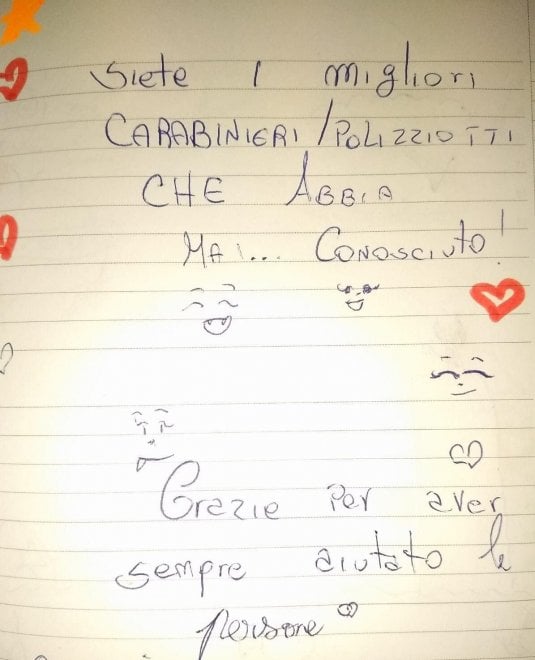 Siete i migliori
CARABINIERI/POLIZZIOTTI
CHE ABBIA
MAI... CONOSCIUTO!
Grazie per aver
sempre aiutato le
persone